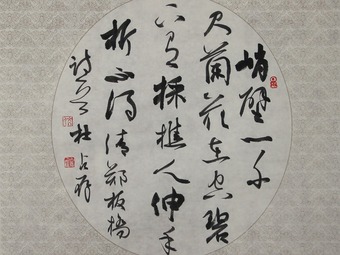 峭壁一千
尺蘭花在空碧
下有採樵人伸手
折不得清鄭板橋
詩 杜占